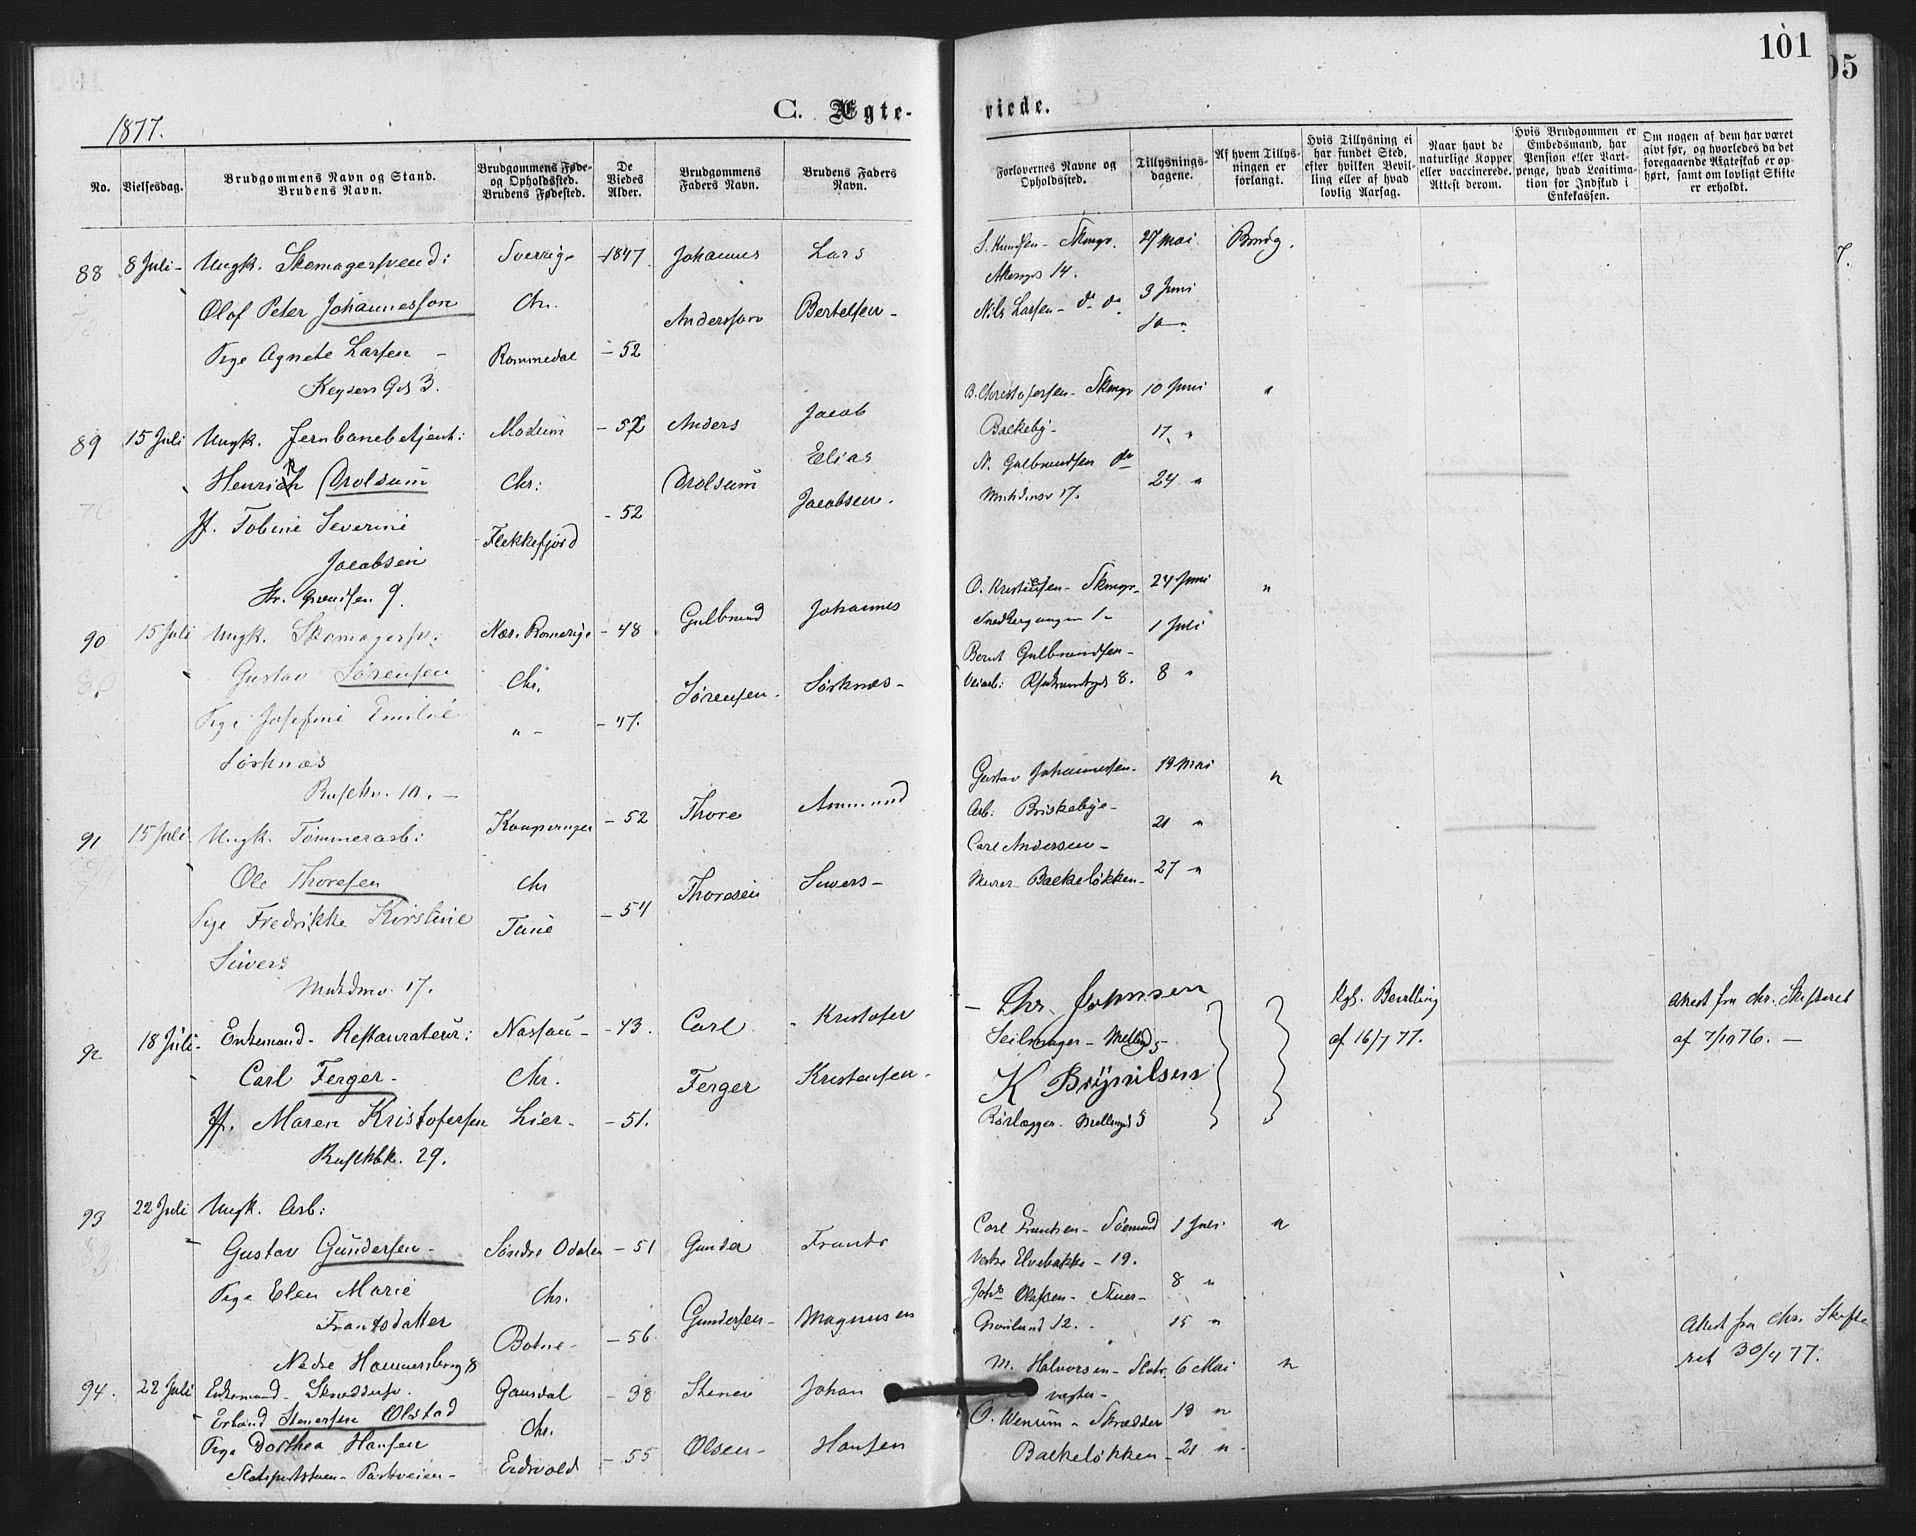 101
05
C. Ægte-
viede.
1877.
No.
Vielsesdag.
Brudgommens Navn og Stand.
Brudens Navn.
Brudgommens Føde-
og Opholdssted.
Brudens Fødested.
De
Viedes
Alder.
Brudgommens
Faders Navn.
Brudens Faders
Navn.
Forlovernes Navne og
Opholdssted.
Tillysnings-
dagene.
Af hvem Tillys-
ningen er
forlangt.
Hvis Tillysning ei
har fundet Sted,
efter hvilken Bevil-
ling eller af hvad
lovlig Aarsag.
Naar havt de
naturlige Kopper
eller vaccinerede.
Attest derom.
Hvis Brudgommen er
Embedsmand, har
Pension eller Vart-
penge, hvad Legitima-
tion for Indskud i
Enkekassen.
Om nogen af dem har været
givt før, og hvorledes da det
foregaaende Ægteskab er op-
hørt, samt om lovligt Skifte
er erholdt.
88 8 Juli - Ungk. Skomagersvend: Sverrig - 1847. Johannes Lars
Olaf Peter Johannessen Chr. Anderssøn Bertelsen -
Pige Agnete Larsen - Rommedal - 52
Keysers Gd 3.
S. Knudsen - Skmgr. 27 Mai Brudg.
Akersgd 14. 3 Juni
Nils Larsen - do do
10 "
89 15 Juli Ungk. Jernbanebetjent: Modum - 52 Anders Jacob
Henrik Drolsum Chr: Drolsum Elias
Jf. Tobine Severine - 52 Jacobsen.
Jacobsen Flekkefjord
9.
B. Christofersen - Skmgr 10 Juni "
Bakkeby - 17 "
N. Gulbrandsen do 24 "
17.
90 15 Juli Ungk. Skomagersv: Nes. Romerige - 48 Gulbrand Johannes
Gustav Sørensen Chr. Sørensen - Sørknæs -
Pige Josefine Emilie " - - 47.
Sørknæs
10. -
O. Kristensen - Skmgr. 24 Juni "
Snedkergangen 1 - 1 Juli
Bernt Gulbrandsen -
8. 8 "
91 15 Juli Ungk. Tømmerarb: Kaupanger - 52 Thore Ammund
Ole Thoresen Chr Thoresen Siwers -
Pige Fredrikke Kirstine Tune - 54
Siwers
17.
Gustav Johannesen - 19 Mai "
Arb: Briskebye - 21 "
Carl Andersen -
Murer - Bakkeløkken - 27 "
92 18 Juli - Enkemand - Restaurateur: Nassau - - 43. Carl Kristofer
Carl Ferger - Chr. Ferger Kristensen -
Jf. Maren Kristofersen Lier - - 51.
29.
Chr. Johnsen
Seilmager - Mellemgd 5 -
K Brynilsen
Rørlægger. Mellemgd 5
Kgl. Bevilling
af 16/7 77.
Attest fra Chr. Skifteret
af 7/10 76. -
93 22 Juli Ungk. Arb:
Gustav Gundersen - Søndre Odalen - 51 Gunder Frants
Pige Elen Marie Chr.
Frantsdatter Botne - - 56 Gundersen - Magnusen
Nedre Hammersborg 8
Carl Frantsen - Sømand 1 Juli "
Vestre Elvebakke - 19.
Olafsen - 8 "
Grønland 12. - 15 "
94. 22 Juli Enkemand - Skræddersv. Gausdal - 38 Stener Johan
Erland Stenersen Olstad Chr.
Pige Dorthea Hansen Eidsvold - 55 Olsen - Hansen
Parkveien -
M. Halvorsen - Slots 6 Mai "
vagten -
O. Wenum - Skrædder 13 "
Bakkeløkken - 21 "
Attest fra Chr. Skifte
ret 30/4 77.